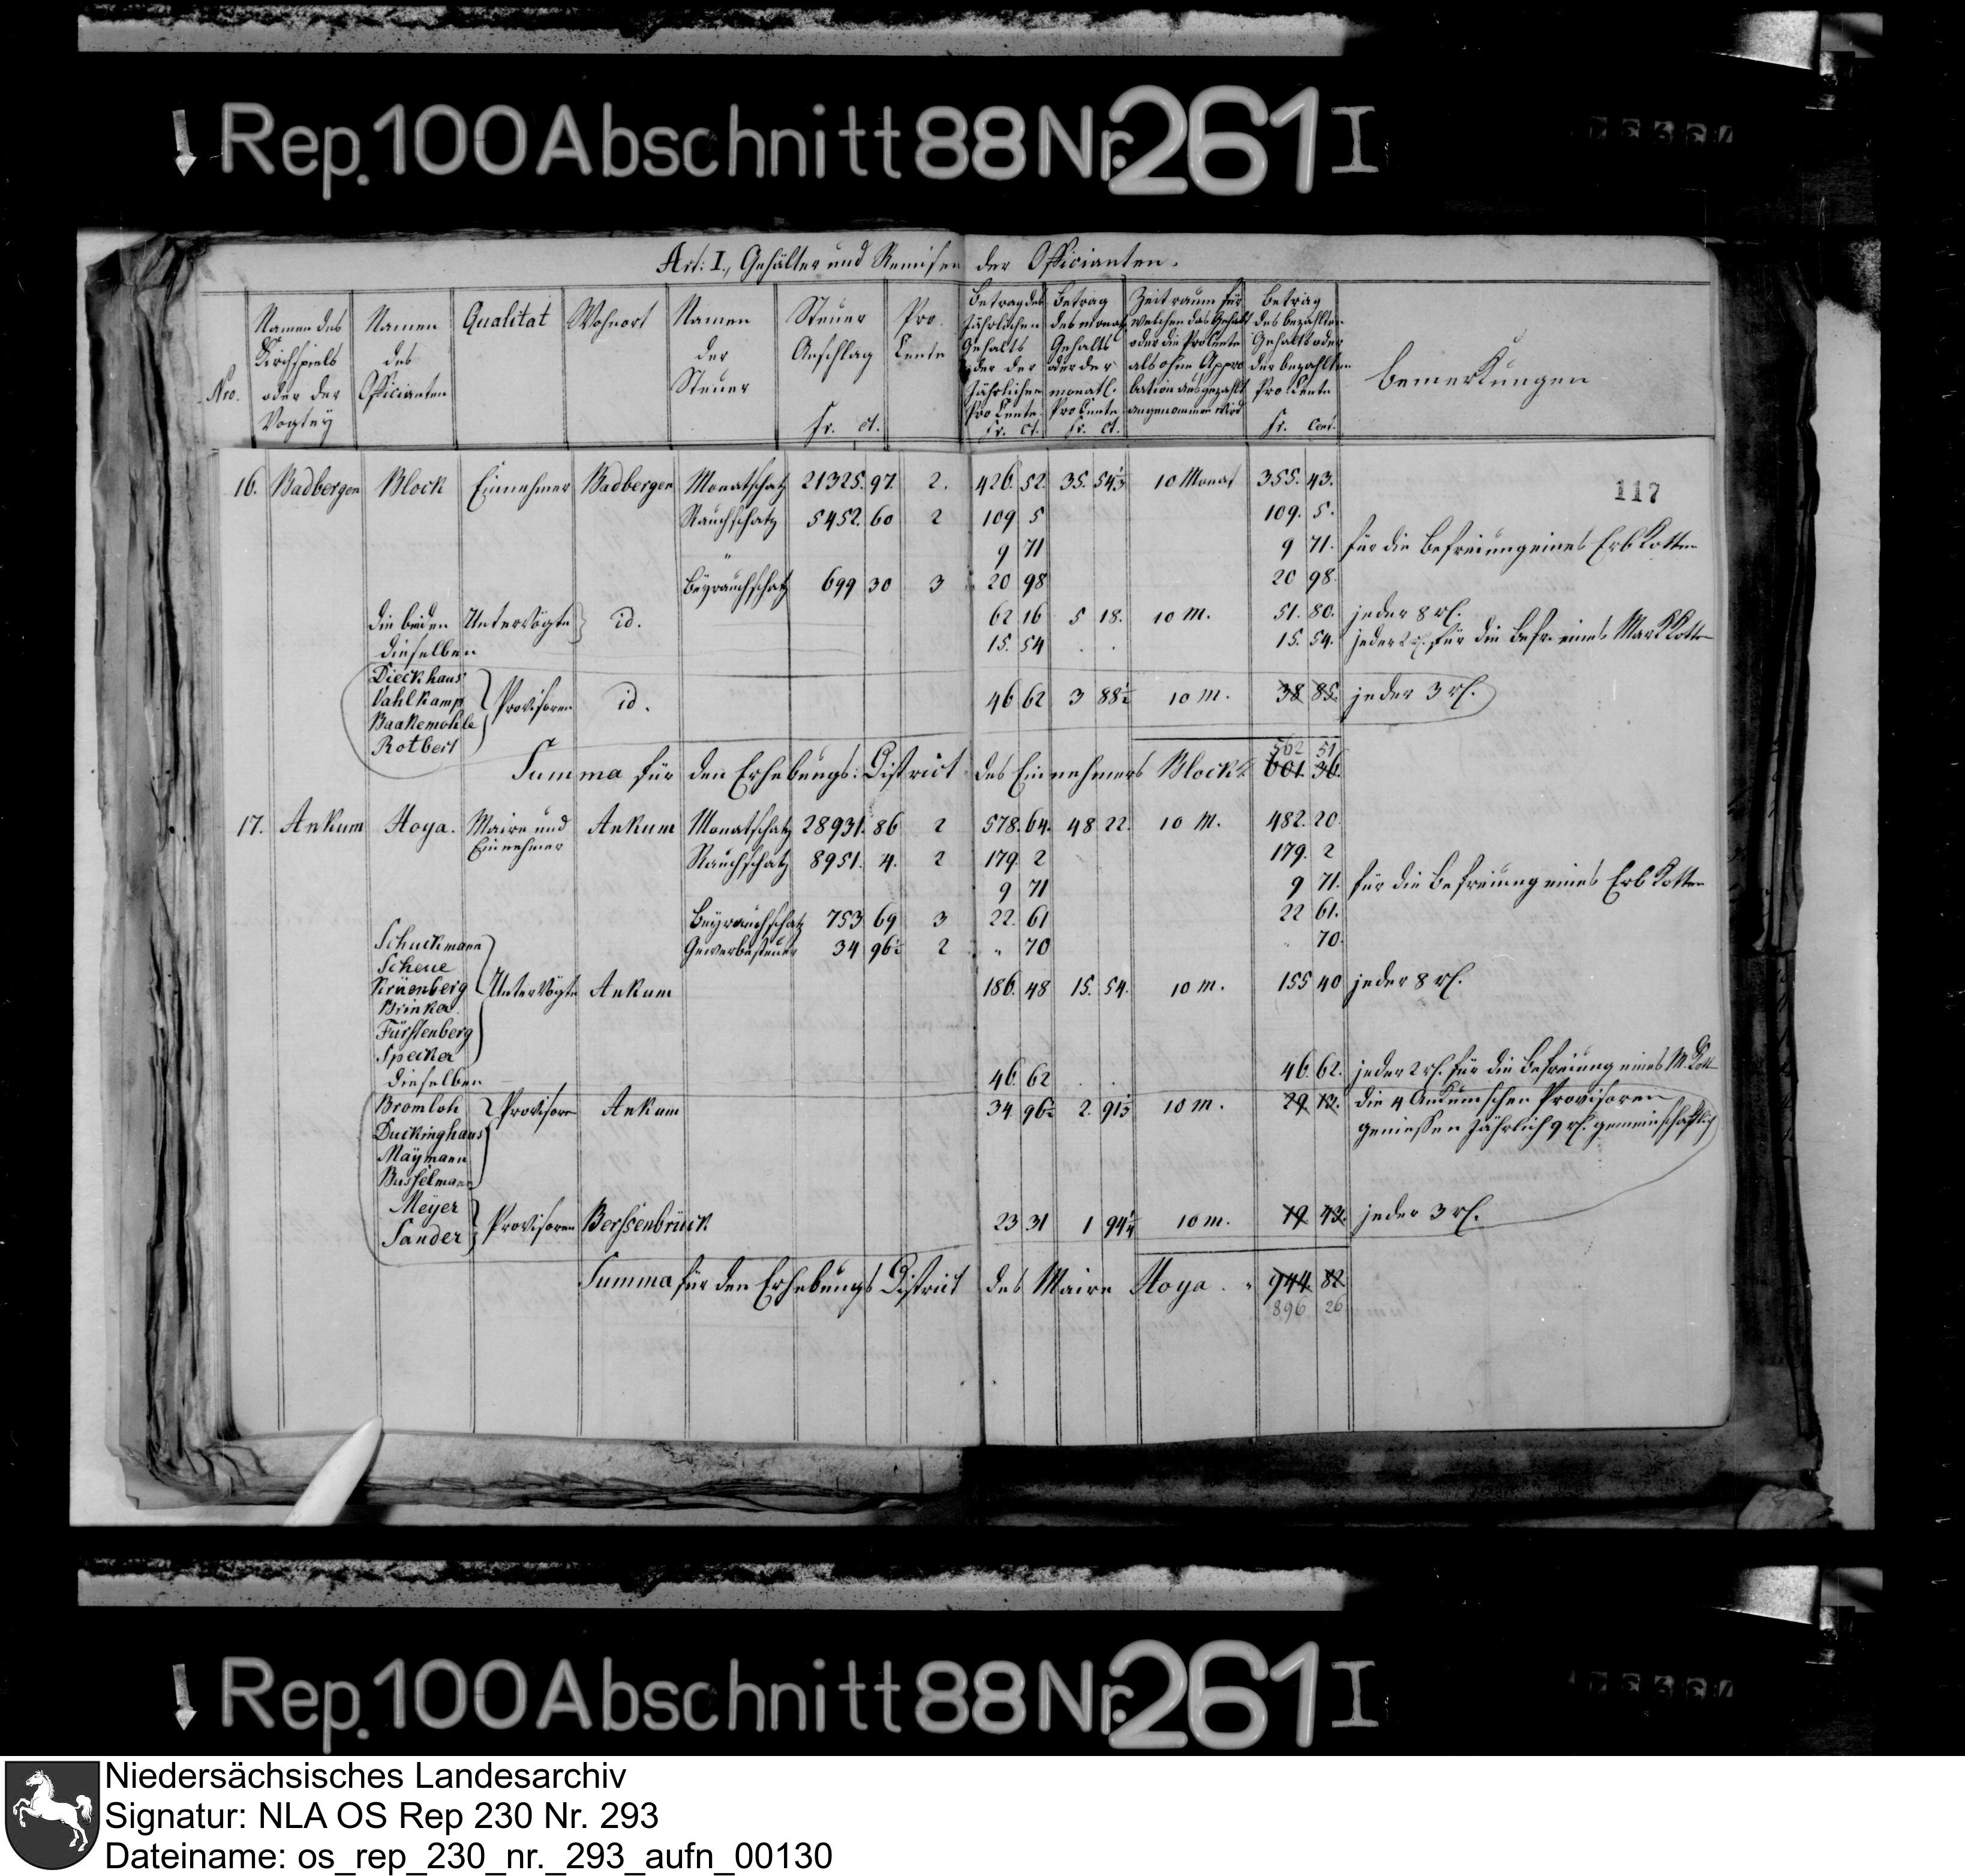 Rep. 100 Abschnitt 88 Nr. 261 I
Art: I., Gehälter und Remisen der Officianten.
Nro.
Namen des Kirchspiels oder der Vogtey
Namen des Officianten
Qualitat
Wohnort
Namen der Steuer
Steuer Anschlag fr. ct.
Pro Cente
Betrag des Jährlichen Gehalts oder der Jährlichen Pro Cente fr. ct.
Betrag des monat. Gehalts oder der monatl. Pro Cente fr. ct.
Zeitraum für welchen das Gehalt oder die Pro Cente als ohne Appro bation ausgezahlt angenommen wird
Betrag des bezahlten Gehalts oder der bezahlten Pro Cente fr. Cent.
Bemerkungen
117
16. Badbergen Block Einnehmer Badbergen Monatschatz 21325. 97. 2. 426. 52. 35. 54 1/3 10 Monat 355. 43.
Rauchschatz 5452. 60 2 109 5 109. 5.
" 9 71 9 71. für die Befreiung eines Erb Kotten
Beyrauchschatz 699 30 3 20 98 20 98.
die beiden Untervögte id. 62 16 5 18. 10 M. 51. 80. jeder 8 rl.
dieselben 15. 54 15. 54. jeder 2 rl. für die Befr. eines Mark Kotten
Dieckhaus
Vahlkamp
Baakemohle
Rotbert
Provisoren id. 46 62 3 88 1/2 10 M. 38 85. jeder 3 rl.
562 51
Summa für den Erhebungs: District des Einnehmers Block 601. 36.
17. Ankum Hoya. Maire und Einnehmer Ankum Monatschatz 28931. 86 2 578. 64. 48 22. 10 M. 482. 20
Rauchschatz 8951. 4. 2 179. 2 179. 2
9 71 9 71. für die Befreiung eines Erb Kotten
Beyrauchschatz 753 69 3 22. 61 22 61.
Gewerbesteuer 34 96 1/2 2 " 70 " 70.
Schuckmann
Scheue
Krüenberg
Brinker
Fürstenberg
Specker
Untervögte Ankum 186. 48 15. 54. 10 M. 155 40 jeder 8 rl.
dieselben 46. 62 46. 62. jeder 2 rl. für die Befreiung eines M. Kott
Bromloh
Duckinghaus
Maymann
Busselmann
Provisoren Ankum 34. 96 1/2 2. 91 1/3 10 M. 29 13. die 4 Ankumschen Provisoren
geniessen Jährlich 9 rl. gemeinschaftlich
Meyer
Sander
Provisoren Berssenbrück 23 31 1 94 1/4 10 M. 19 43. jeder 3 rl.
Summa für den Erhebungs District des Maire Hoya. " 944. 82.
896 26
Rep. 100 Abschnitt 88 Nr. 261 I
Niedersächsisches Landesarchiv
Signatur: NLA OS Rep 230 Nr. 293
Dateiname: os_rep_230_nr._293_aufn_00130